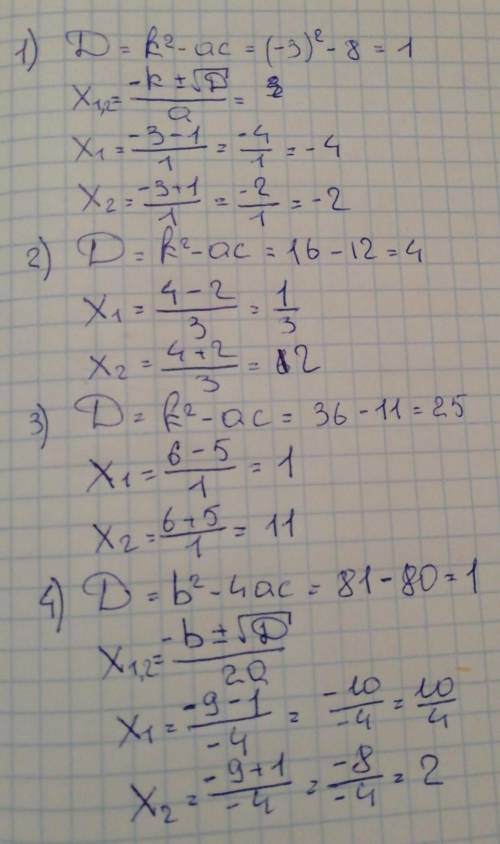 1) D = k² - ac = (-3)² - 8 = 1
X₁,₂ = (-k ± √D)/a =
X₁ = (-3-1)/1 = -4/1 = -4
X₂ = (-3+1)/1 = -2/1 = -2
2) D = k² - ac = 16 - 12 = 4
X₁ = (4-2)/3 = 1/3
X₂ = (4+2)/3 = 2
3) D = k² - ac = 36 - 11 = 25
X₁ = (6-5)/1 = 1
X₂ = (6+5)/1 = 11
4) D = b² - 4ac = 81 - 80 = 1
X₁,₂ = (-b ± √D)/2a
X₁ = (-9-1)/-4 = -10/-4 = 10/4
X₂ = (-9+1)/-4 = -8/-4 = 2